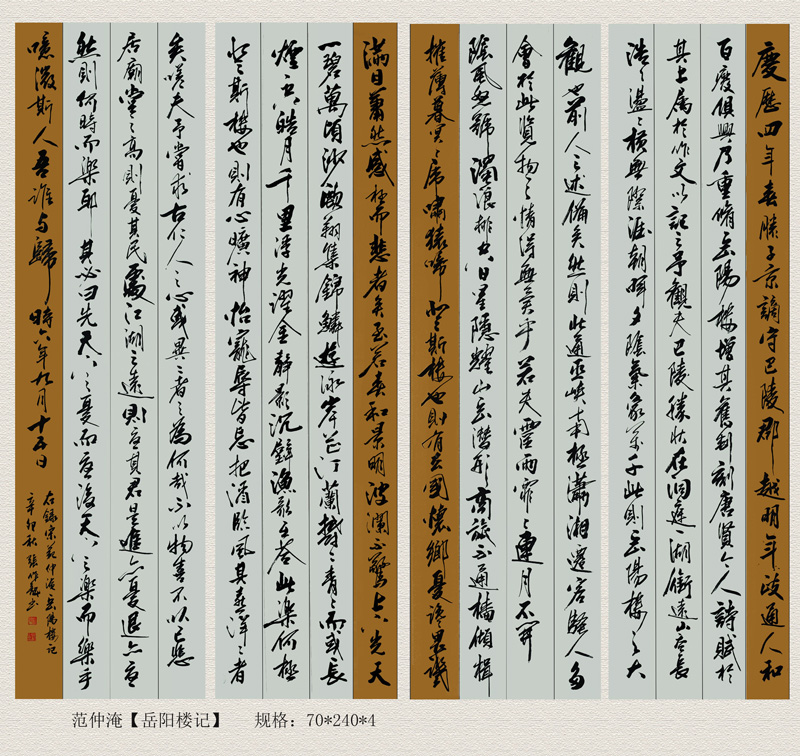 慶歷四年春滕子京謫守巴陵郡越明年政通人和
百廢俱興乃重脩岳陽樓增其舊制刻唐賢今人詩賦於
其上属於作文以記之予觀夫巴陵勝狀在洞庭一湖銜遠山吞長
浩々蕩々橫無際涯朝暉夕陰氣象萬千此則岳陽樓之大
觀也前人之述備矣然則北通巫峽南極瀟湘遷客騷人多
會於此覽物之情得無異乎若夫霪雨霏々連月不開
陰風怒號濁浪排空日星隱耀山岳潛形商旅不通檣傾楫
摧薄暮冥々虎嘯猿啼登斯樓也則有去國懷鄉憂讒畏譏
滿目蕭然感極而悲者矣至若春和景明波瀾不驚上下光天
一碧萬頃沙鷗翔集錦鱗游泳岸芷汀蘭鬱々青々而或長
煙一空皓月千里浮光躍金靜影沉璧漁歌互答此樂何極
登斯樓也則有心曠神怡寵辱皆忘把酒臨風其喜洋々者
矣嗟夫予嘗求古仁人之心或異二者之為何哉不以物喜不以己悲
居廟堂之高則憂其民處江湖之遠則憂其君是進亦憂退亦憂
然則何時而樂耶其必曰先天下之憂而憂後天下之樂而樂乎
噫微斯人吾誰与歸時六年九月十五日
右錄宋范仲淹岳陽樓記
辛卯秋張作書
范仲淹【岳阳楼记】 规格：70*240*4